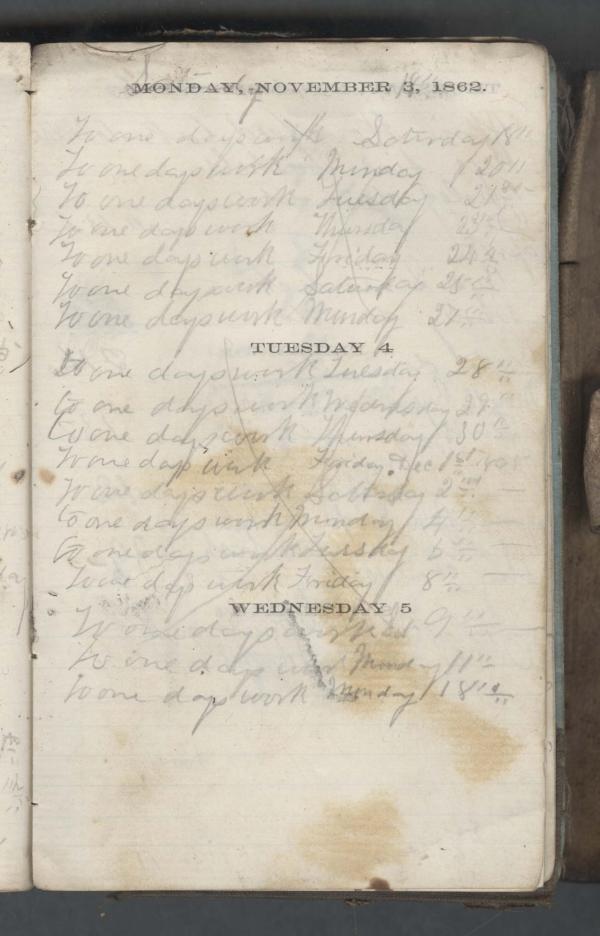 MONDAY, NOVEMBER 3, 1862.
To one days work Saturday 18"
To one days work Munday 20"
To one days work Tuesday 21
To one days work Thursday 23
To one days work Friday 24
To one days work Saturday 25
To one days work Munday 27
TUESDAY 4
To one days work Tuesday 28"
to one days work Wednesday 29"
to one days work Thursday 30"
To one days work Friday Dec 1st
To one days work Saturday 2nd
to one days work Munday 4"
to one days work Tuesday 5"
to one days work Friday 8"
WEDNESDAY 5
To one days work Sat 9"
to one days work Munday 11"
to one days work Munday 18"